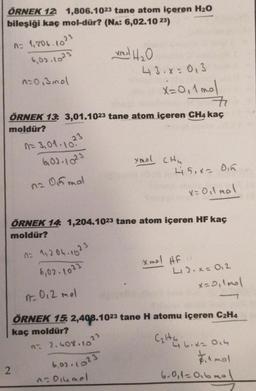 ÖRNEK 12: 1,806.10²³ tane atom içeren H₂O
bileşiği kaç mol-dür? (NA: 6,02.10 23)
n= 1,806.10²³
6,02.10²³
x mol H₂O
n=0,3mol
3.x=0,3
x=0,1 mol
ÖRNEK 13: 3,01.10²³ tane atom içeren CH₄ kaç
moldür?
n= 3,01.10²³
6,02.10²³
x mol CH₄
n= 0,5 mol
5.x= 0,5
x=0,1 mol
ÖRNEK 14: 1,204.10²³ tane atom içeren HF kaç
moldür?
n= 1,204.10²³
6,02.10²³
x mol HF
n= 0,2 mol
2.x=0,2
x=0,1mol
ÖRNEK 15: 2,408.10²³ tane H atomu içeren C₂H₄
kaç moldür?
n= 2.408.10²³
6,02.10²³
n=0,4mol
C₂H₄
0,1 mol
2